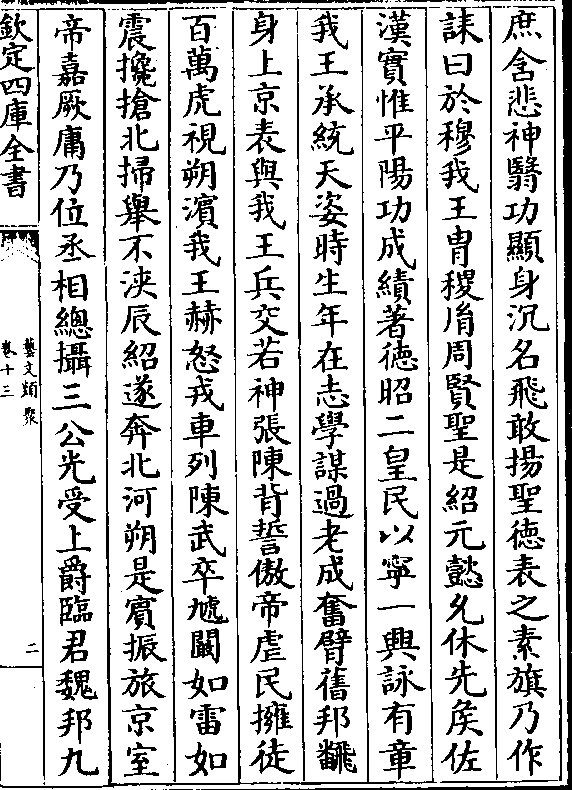 庶含悲神翳功顯身沉名飛敢揚聖徳表之素旗乃作
誄曰於穆我王胄稷胤周賢聖是紹元懿允休先侯佐
漢實惟平陽功成績著徳昭二皇民以寧一興詠有章
我王承統天姿時生年在志學謀過老成奮臂舊邦翻
身上京表與我王兵交若神張陳背誓傲帝虐民擁徒
百萬虎視朔濱我王赫怒戎車列陳武卒虓闞如雷如
震攙搶北掃舉不浹辰紹遂奔北河朔是賓振旅京室
帝嘉厥庸乃位丞相總攝三公光受上爵臨君魏邦九
欽定四庫全書
藝文類聚
卷十三
二